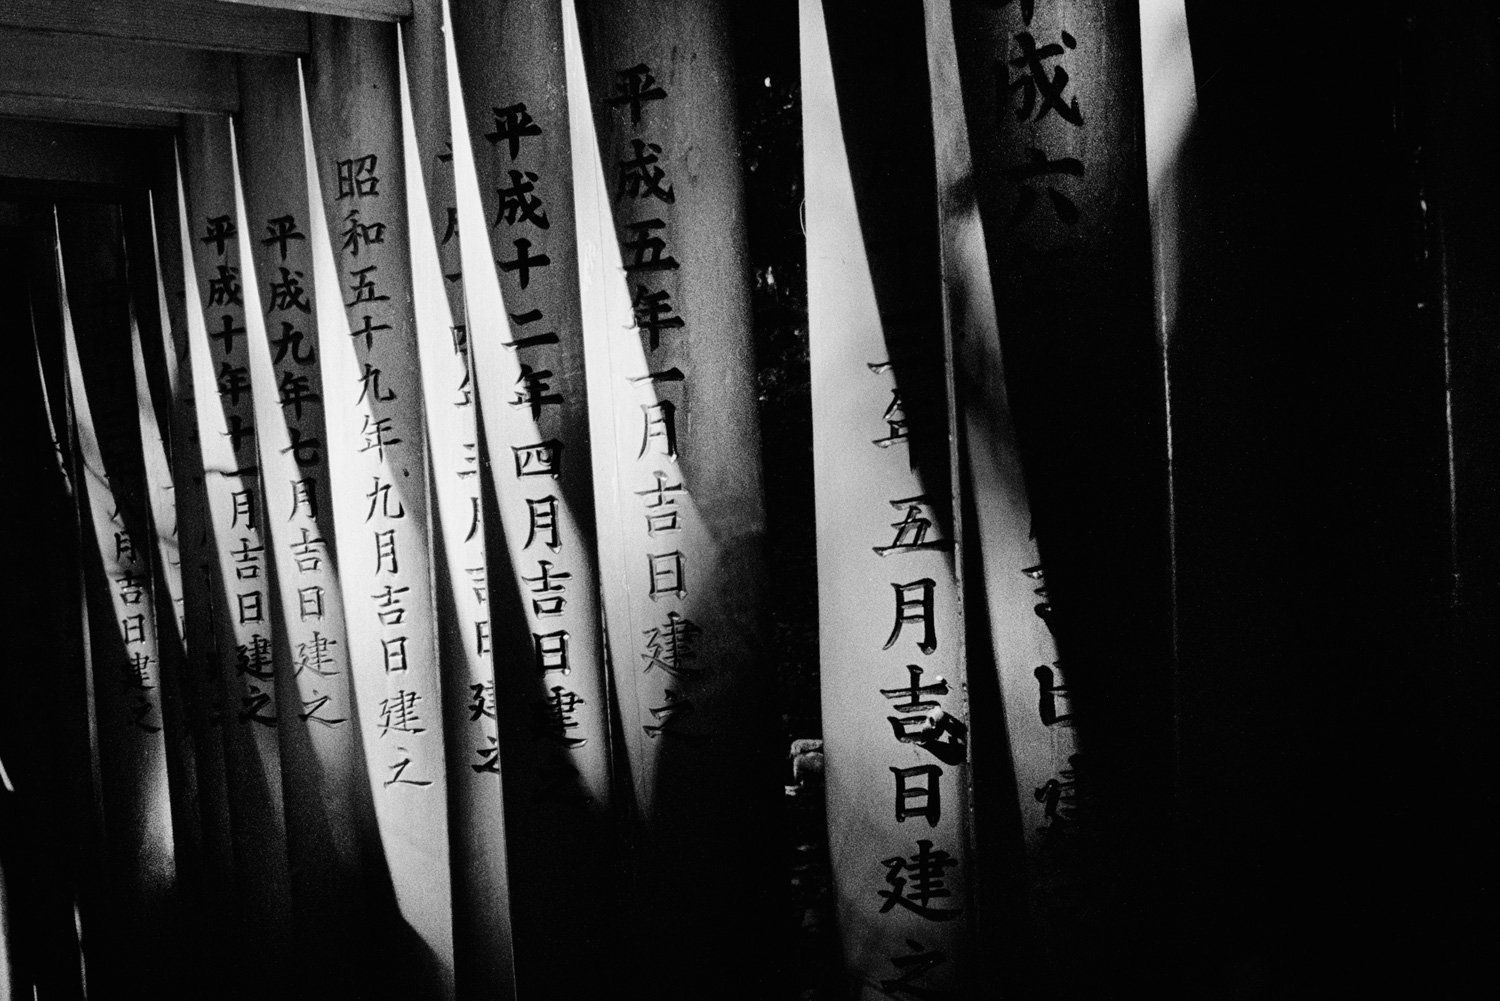 成六
年五月吉日建之
平成五年一月吉日建之
平成十二年四月吉日建之
年三月吉日建之
昭和五十九年九月吉日建之
平成九年七月吉日建之
平成十年十一月吉日建之
月吉日建之